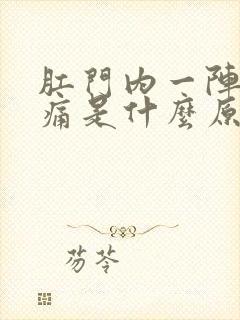 肛門内一陣
痛是什麼原
芴苓